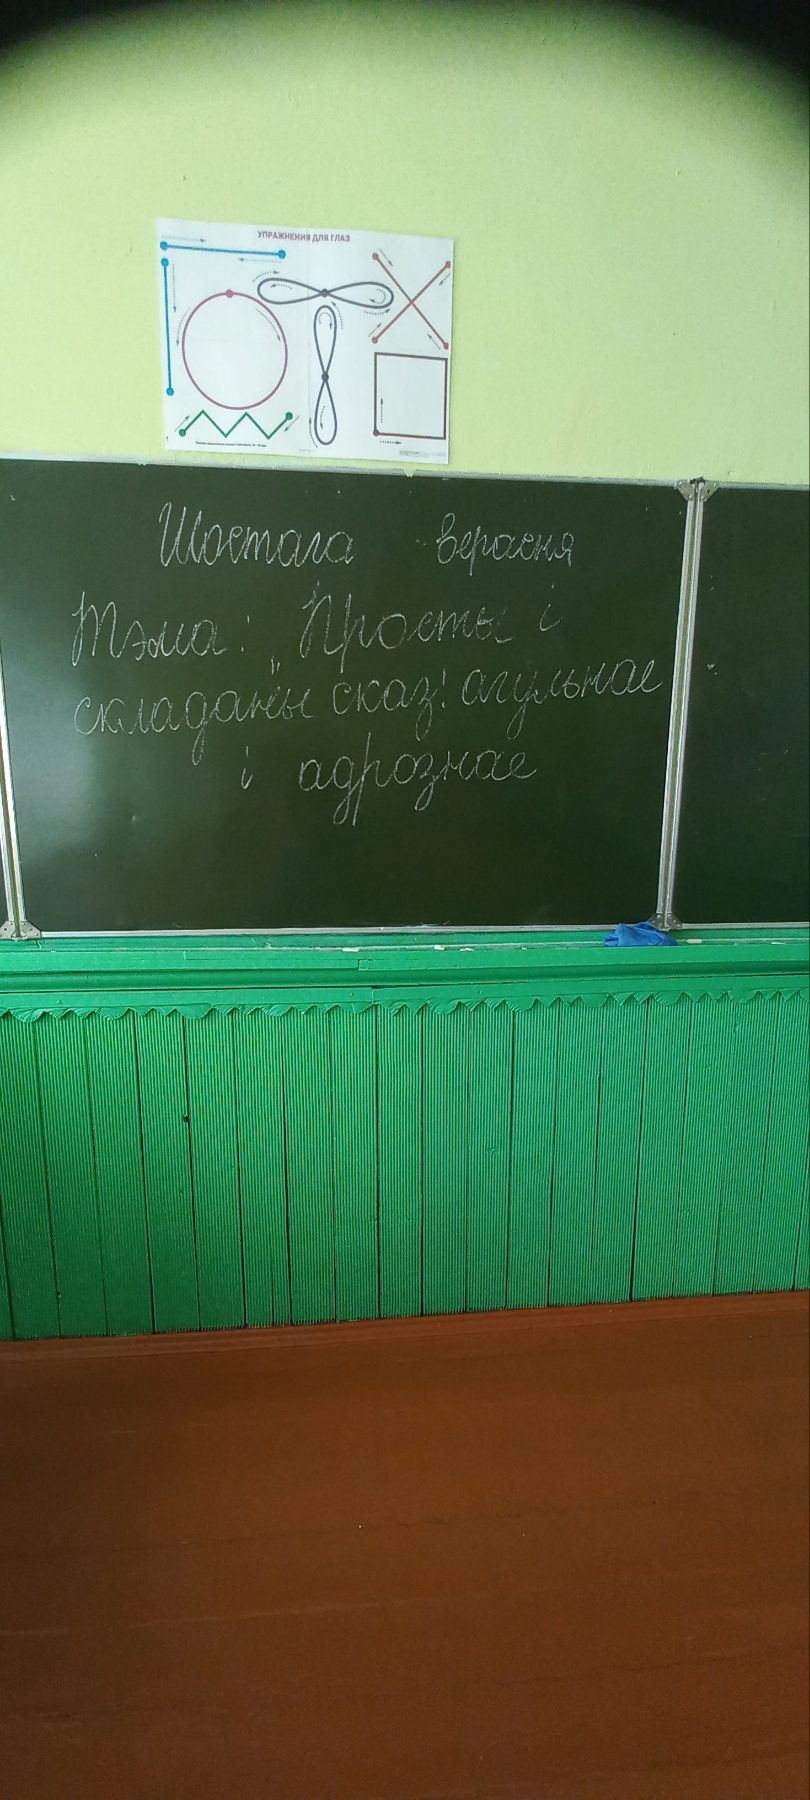 УПРАЖНЕНИЯ ДЛЯ ГЛАЗ
Шостага верасня
Тэма: „Просты і
складаны сказ: агульнае
і адрознае